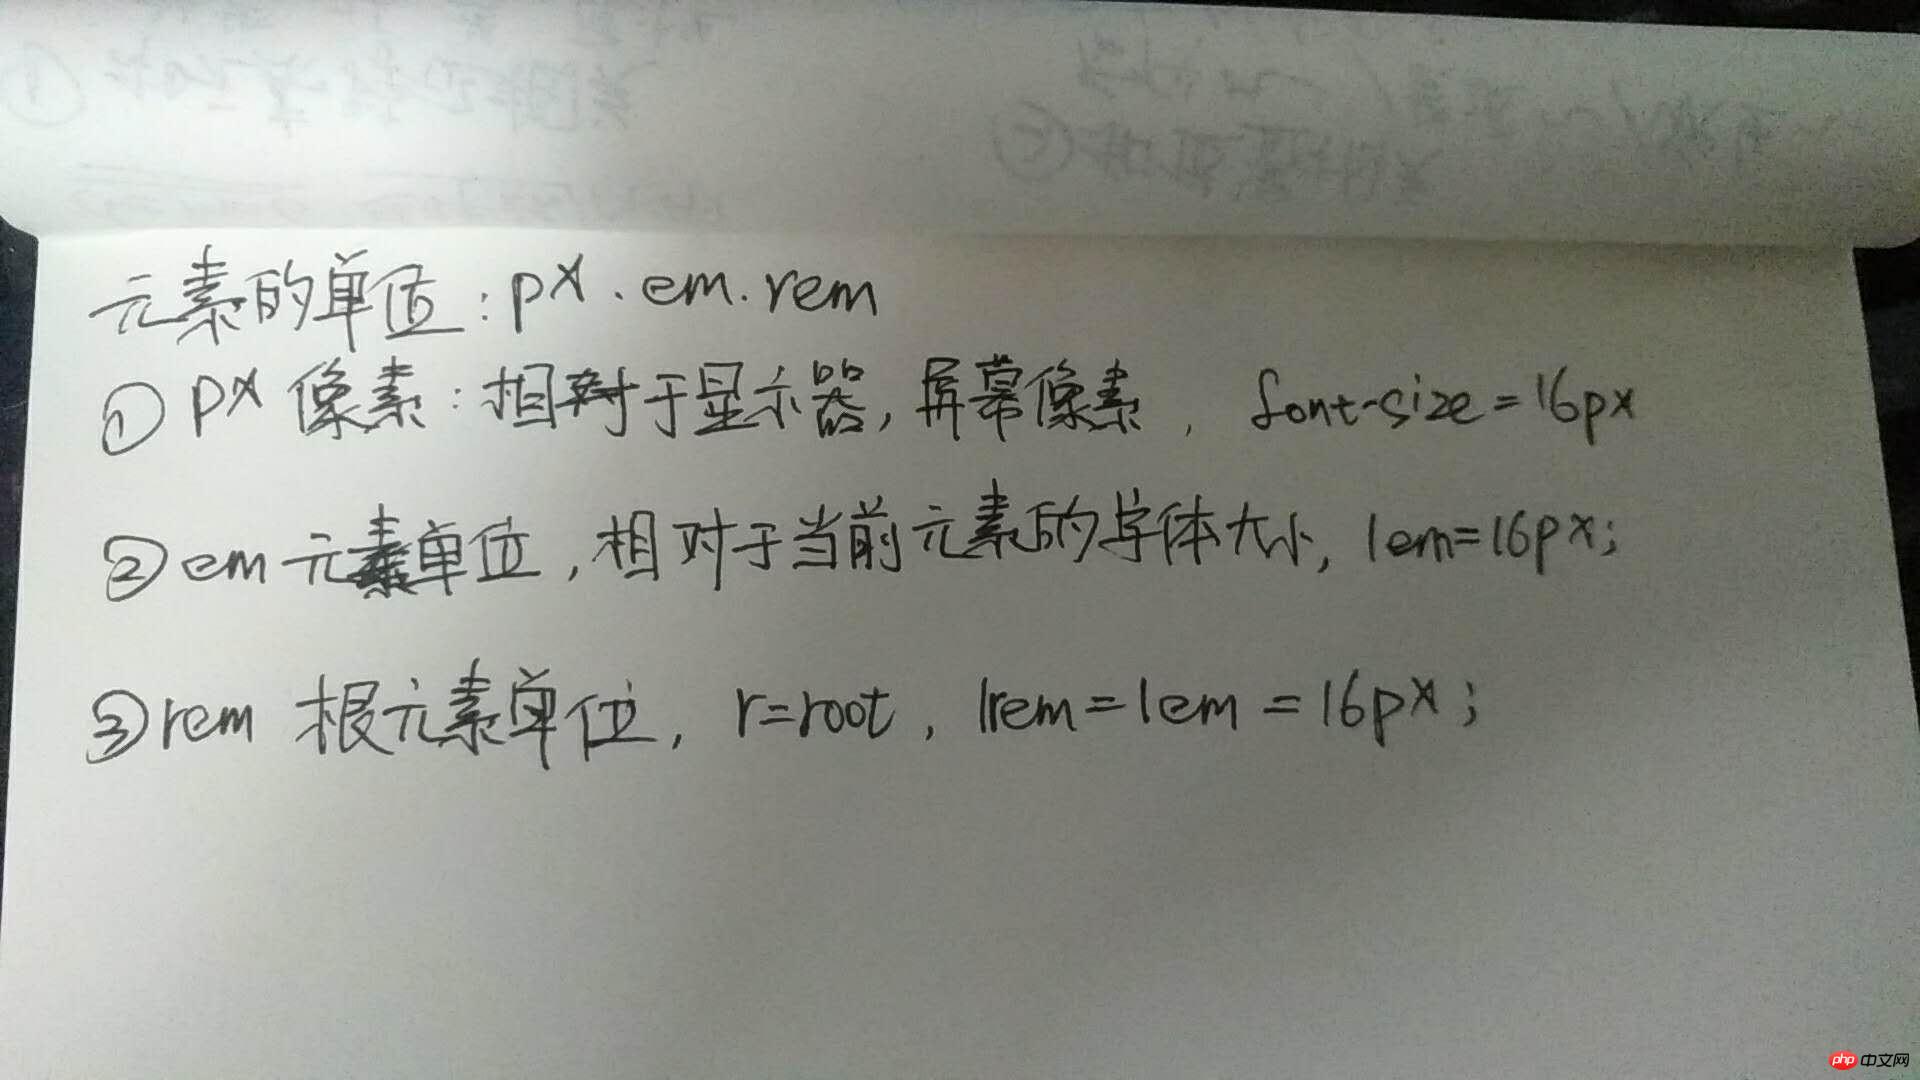 元素的单位:px.em.rem
①px像素:相对于显示器,屏幕像素,font-size=16px
②em元素单位,相对于当前元素的字体大小,1em=16px;
③rem 根元素单位,r=root,1rem=1em=16px;
php 中文网